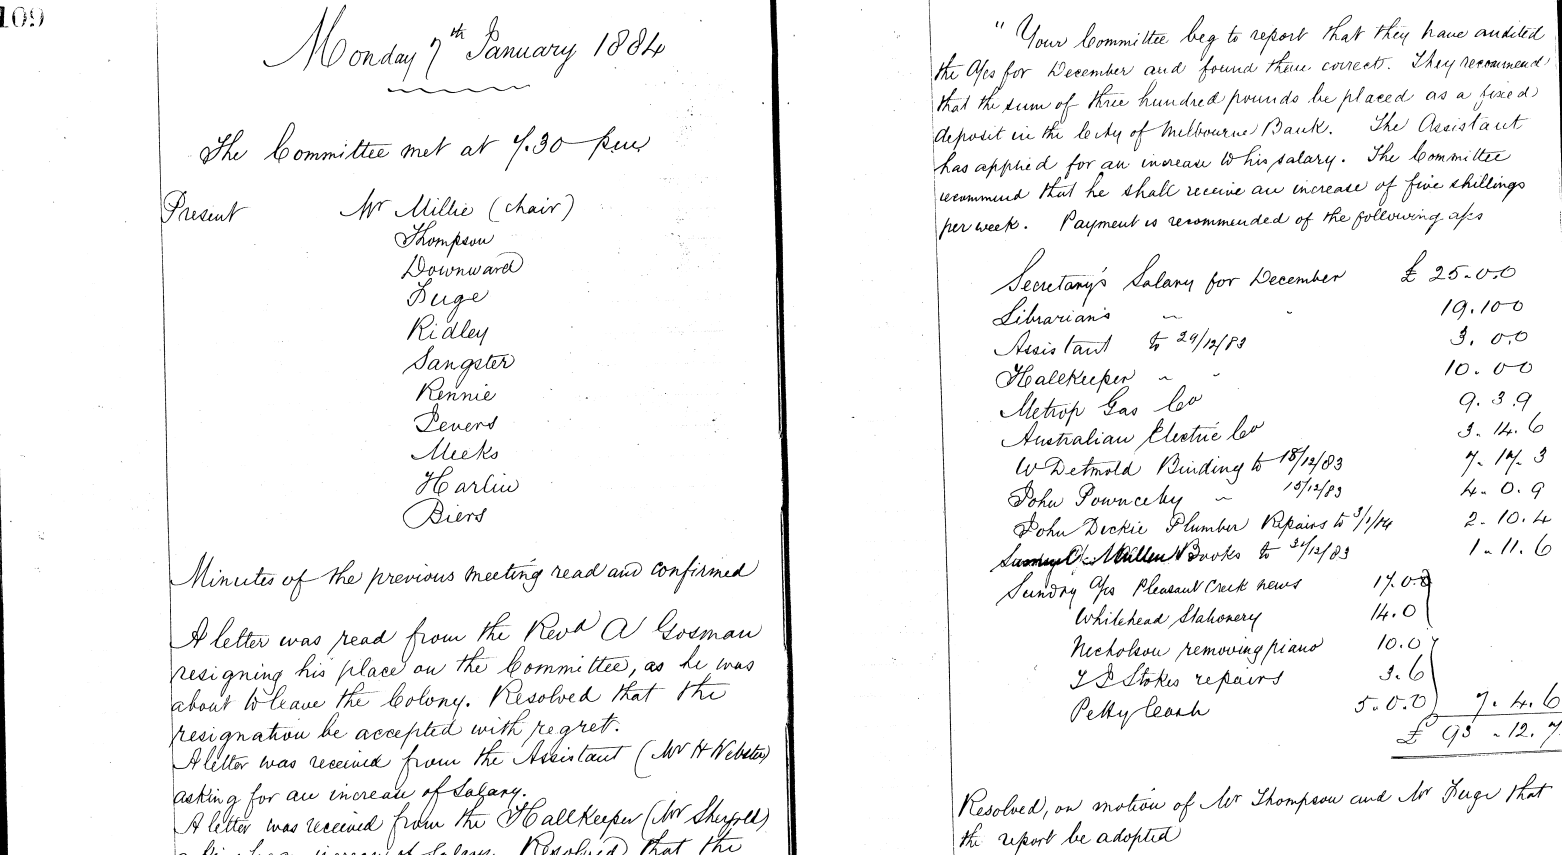 109
Monday 7th January 1884
The Committee met at 7.30 pm
Present Mr Millie (chair)
Thompson
Downward
Fuge
Ridley
Sangster
Rennie
Pevers
Meeks
Harlin
Biers
Minutes of the previous meeting read and confirmed
A letter was read from the Revd A Gosman
resigning his place on the Committee, as he was
about to leave the Colony. Resolved that the
resignation be accepted with regret.
A letter was received from the Assistant (Mr H Webster)
asking for an increase of salary.
A letter was received from the Hallkeeper (Mr Shergold)
increase of salary. Resolved that the
"Your Committee beg to report that they have audited
the a/cs for December and found them correct. They recommend
that the sum of three hundred pounds be placed as a fixed
deposit in the City of Melbourne Bank. The Assistant
has applied for an increase to his salary. The Committee
recommend that he shall receive an increase of five shillings
per week. Payment is recommended of the following a/cs
Secretary's Salary for December £ 25.0.0
Librarian's " " 19.10.0
Assistant to 29/12/83 3.0.0
Hallkeeper " " 10.0.0
Metrop Gas Co 9.3.9
Australian Electric Co 3.14.6
W Detmold Binding to 18/12/83 7.17.3
John Pownceby " 15/12/83 4.0.9
John Dickie Plumber Repairs to 3/1/84 2.10.4
Mullen Books to 31/12/83 1.11.6
Sundry a/cs Pleasant Creek news 17.0
Whitehead Stationery 14.0
Nicholson removing piano 10.0
T S Stokes repairs 3.6
Petty Cash 5.0.0 7.4.6
£ 93.12.7
Resolved, on motion of Mr Thompson and Mr Fuge that
the report be adopted